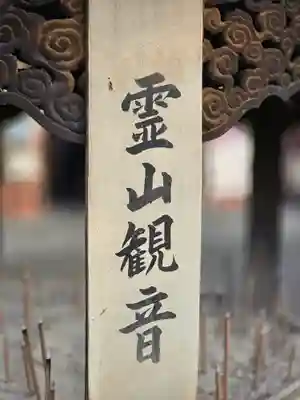 霊山観音